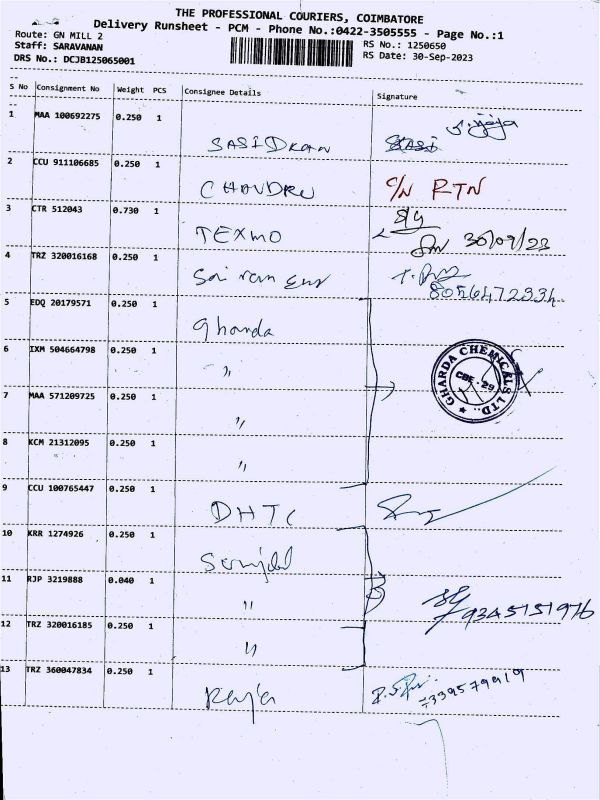 THE PROFESSIONAL COURIERS, COIMBATORE
Delivery Runsheet - PCM - Phone No.:0422-3505555 - Page No.:1
Route: GN MILL 2
Staff: SARAVANAN
DRS No.: DCJB125065001
RS No.: 1250650
RS Date: 30-Sep-2023
S No Consignment No Weight PCS Consignee Details Signature
1 MAA 100692275 0.250 1
2 CCU 911106685 0.250 1 CHANDRU C/N RTN
3 CTR 512043 0.730 1 TEXMO 30/09/23
4 TRZ 320016168 0.250 1 Sai ram 8056472334
5 EDQ 20179571 0.250 1 Gharda
6 IXM 504664798 0.250 1 "
GHARDA CHEMICALS LTD.
CBE - 29
7 MAA 571209725 0.250 1 "
8 KCM 21312095 0.250 1 "
9 CCU 100765447 0.250 1 DHTC
10 KRR 1274926 0.250 1
11 RJP 3219888 0.040 1 " 9345151976
12 TRZ 320016185 0.250 1 "
13 TRZ 360047834 0.250 1 Raja 7339579919